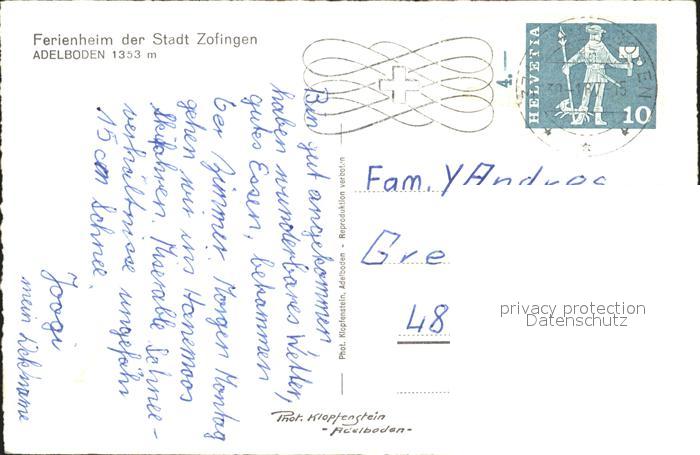 Ferienheim der Stadt Zofingen
ADELBODEN 1353 m
HELVETIA
10
4.–
Bin gut angekommen
haben wunderbares Wetter,
gutes Essen, bekammen
6er Zimmer. Morgen Montag
gehen wir ins Hanemoos
Skifahren. Miserable Schnee-
verhältnisse ungefähr
15 cm Schnee.
Joogi
mein Dekname
Phot. Klopfenstein, Adelboden - Reproduktion verboten
Fam. Y Andreo
Gre
48
privacy protection
Datenschutz
Phot. Klopfenstein
- Adelboden -